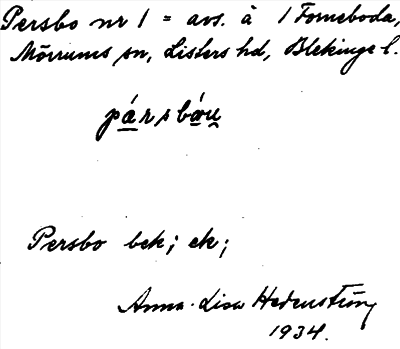 Persbo nr 1 = avs. å 1 Forneboda,
Mörrums sn, Listers hd, Blekinge l.
pársbo̯u̯
Persbo bek; ek;
Anna-Lisa Hedenström
1934.